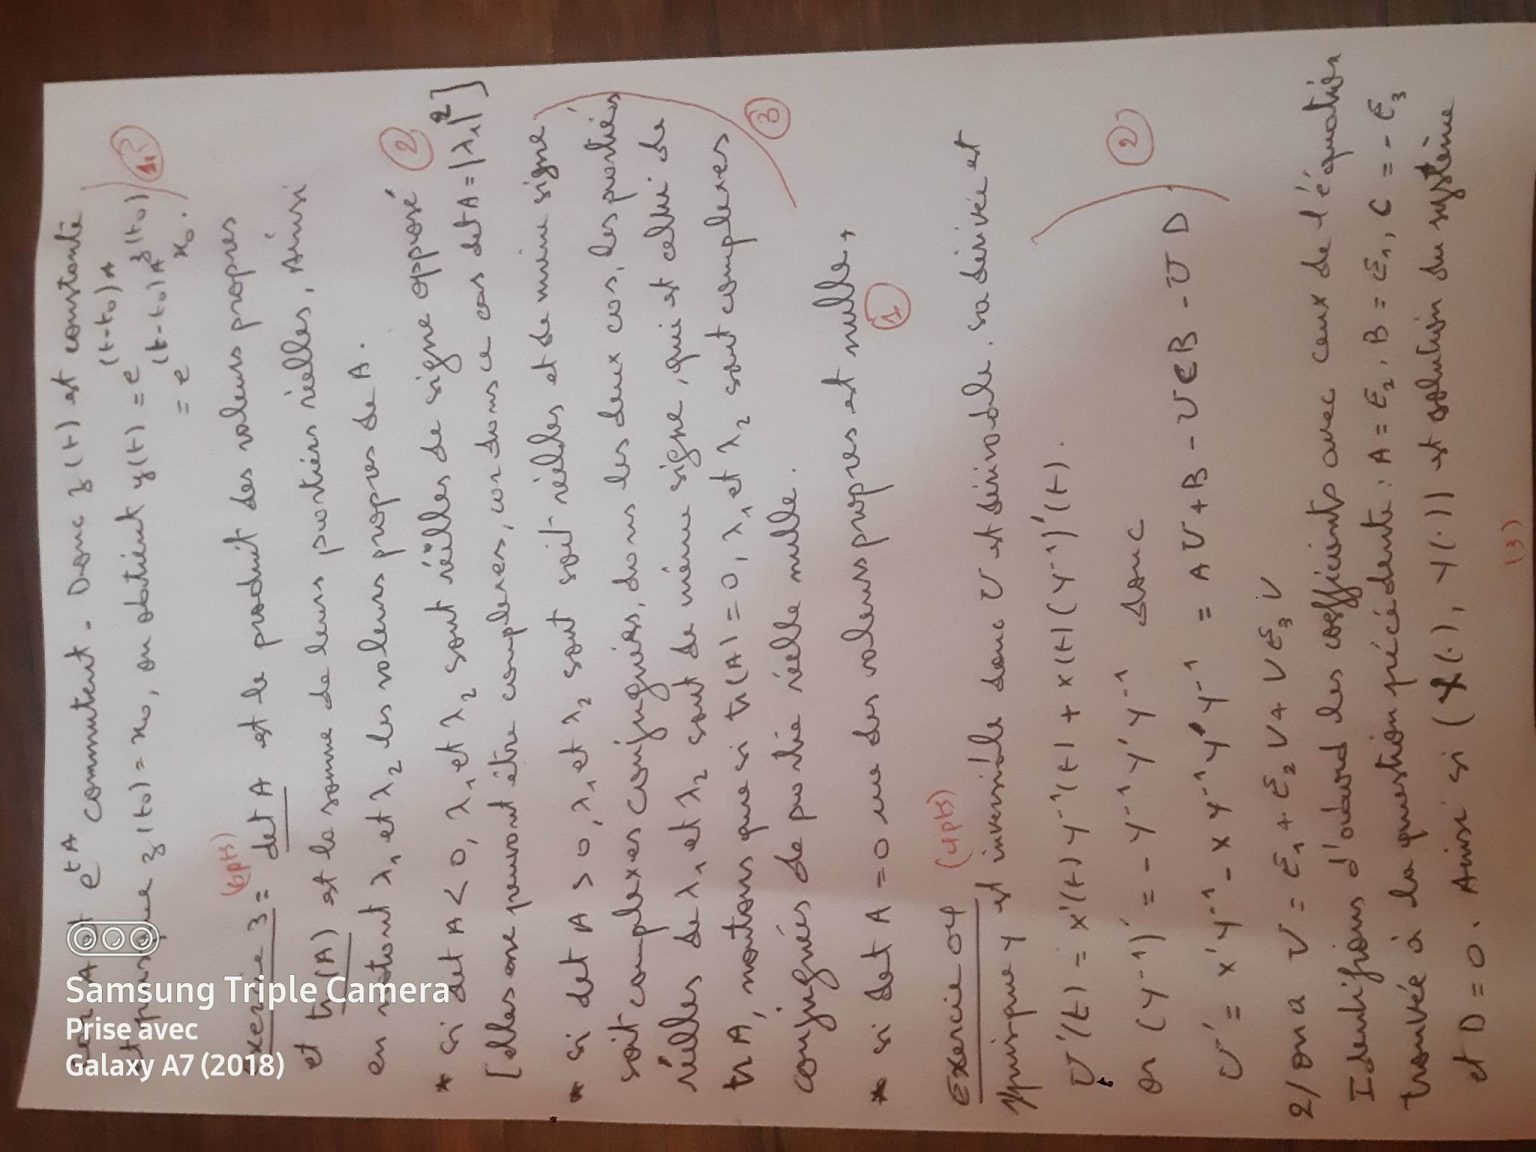 car A et e^{tA} commutent. Donc z(t) est constante
et puisque z(t₀) = x₀, on obtient y(t) = e^{(t-t₀)A} z(t₀)
= e^{(t-t₀)A} x₀.
(6pts)
exercie 3 = det A est le produit des valeurs propres
et tr(A) est la somme de leurs partiés réelles, Ainsi
en notant λ₁ et λ₂ les valeurs propres de A.
* si det A < 0, λ₁ et λ₂ sont réelles de signe opposé ②
[elles ne peuvent être complexes, car dans ce cas det A = |λ₁|²]
* si det A > 0, λ₁ et λ₂ sont soit réelles et de même signe
soit complexes conjuguées, dans les deux cas, les partiés
réelles de λ₁ et λ₂ sont de même signe, qui est celui de
tr A, notons que si tr(A) = 0, λ₁ et λ₂ sont complexes ③
conjuguées de partie réelle nulle.
* si det A = 0 une des valeurs propres est nulle, ①
Exercie 04 (4pts)
1/ puisque Y est inversible donc U est dérivable. sa dérivée est
U'(t) = X'(t) Y⁻¹(t) + X(t) (Y⁻¹)'(t).
or (Y⁻¹)' = - Y⁻¹ Y' Y⁻¹ donc
U' = X' Y⁻¹ - X Y⁻¹ Y' Y⁻¹ = AU + B - UCB - UD ②
2/ on a U' = ε₁ + ε₂ U + U ε₃ U
Identifions d'abord les coefficients avec ceux de l'équation
trouvée à la question précédente : A = ε₂, B = ε₁, C = - ε₃
et D = 0. Ainsi si (X(.), Y(.)) est solution du système
(3)